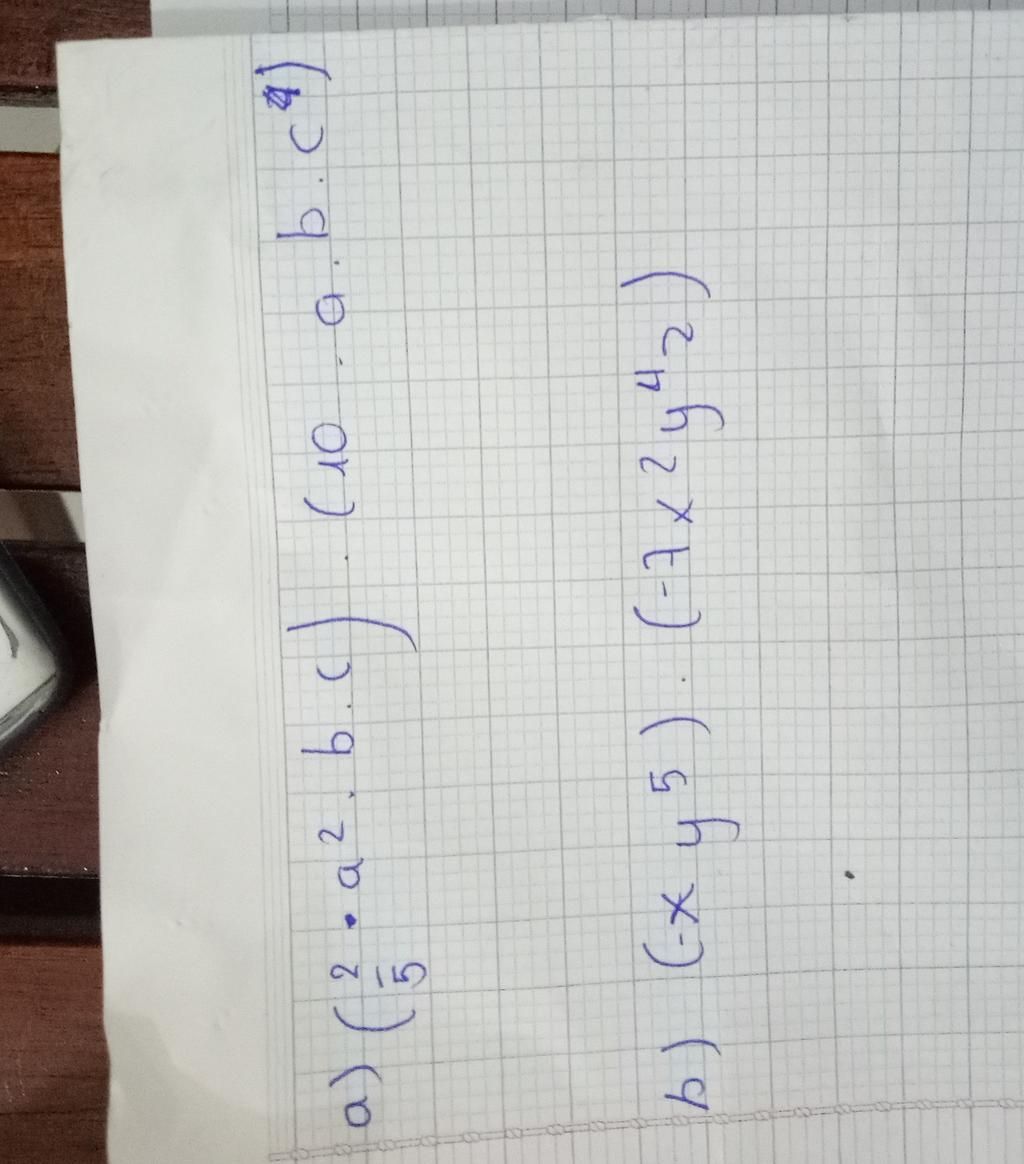 a) (2/5 · a² · b · c) · (10 · a · b · c⁴)
b) (-x y⁵) · (-7x² y⁴ z)